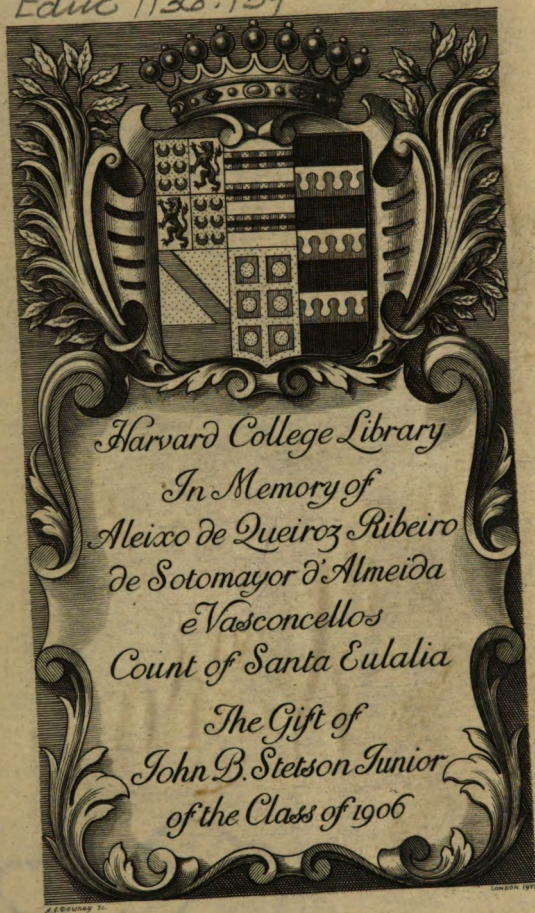 Educ
Harvard College Library
In Memory of
Aleixo de Queiroz Ribeiro
de Sotomayor d'Almeida
e Vasconcellos
Count of Santa Eulalia
The Gift of
John B. Stetson Junior
of the Class of 1906
LONDON